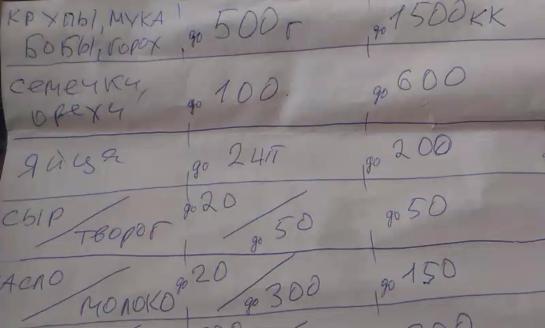 КРУПЫ, МУКА до 500г до 1500кк
БОБЫ, ГОРОХ
СЕМЕЧКИ, до 100 до 600
ОРЕХИ
ЯЙЦА до 2шт до 200
СЫР / ТВОРОГ до 20 / до 50 до 50
АСЛО / МОЛОКО до 20 / до 300 до 150